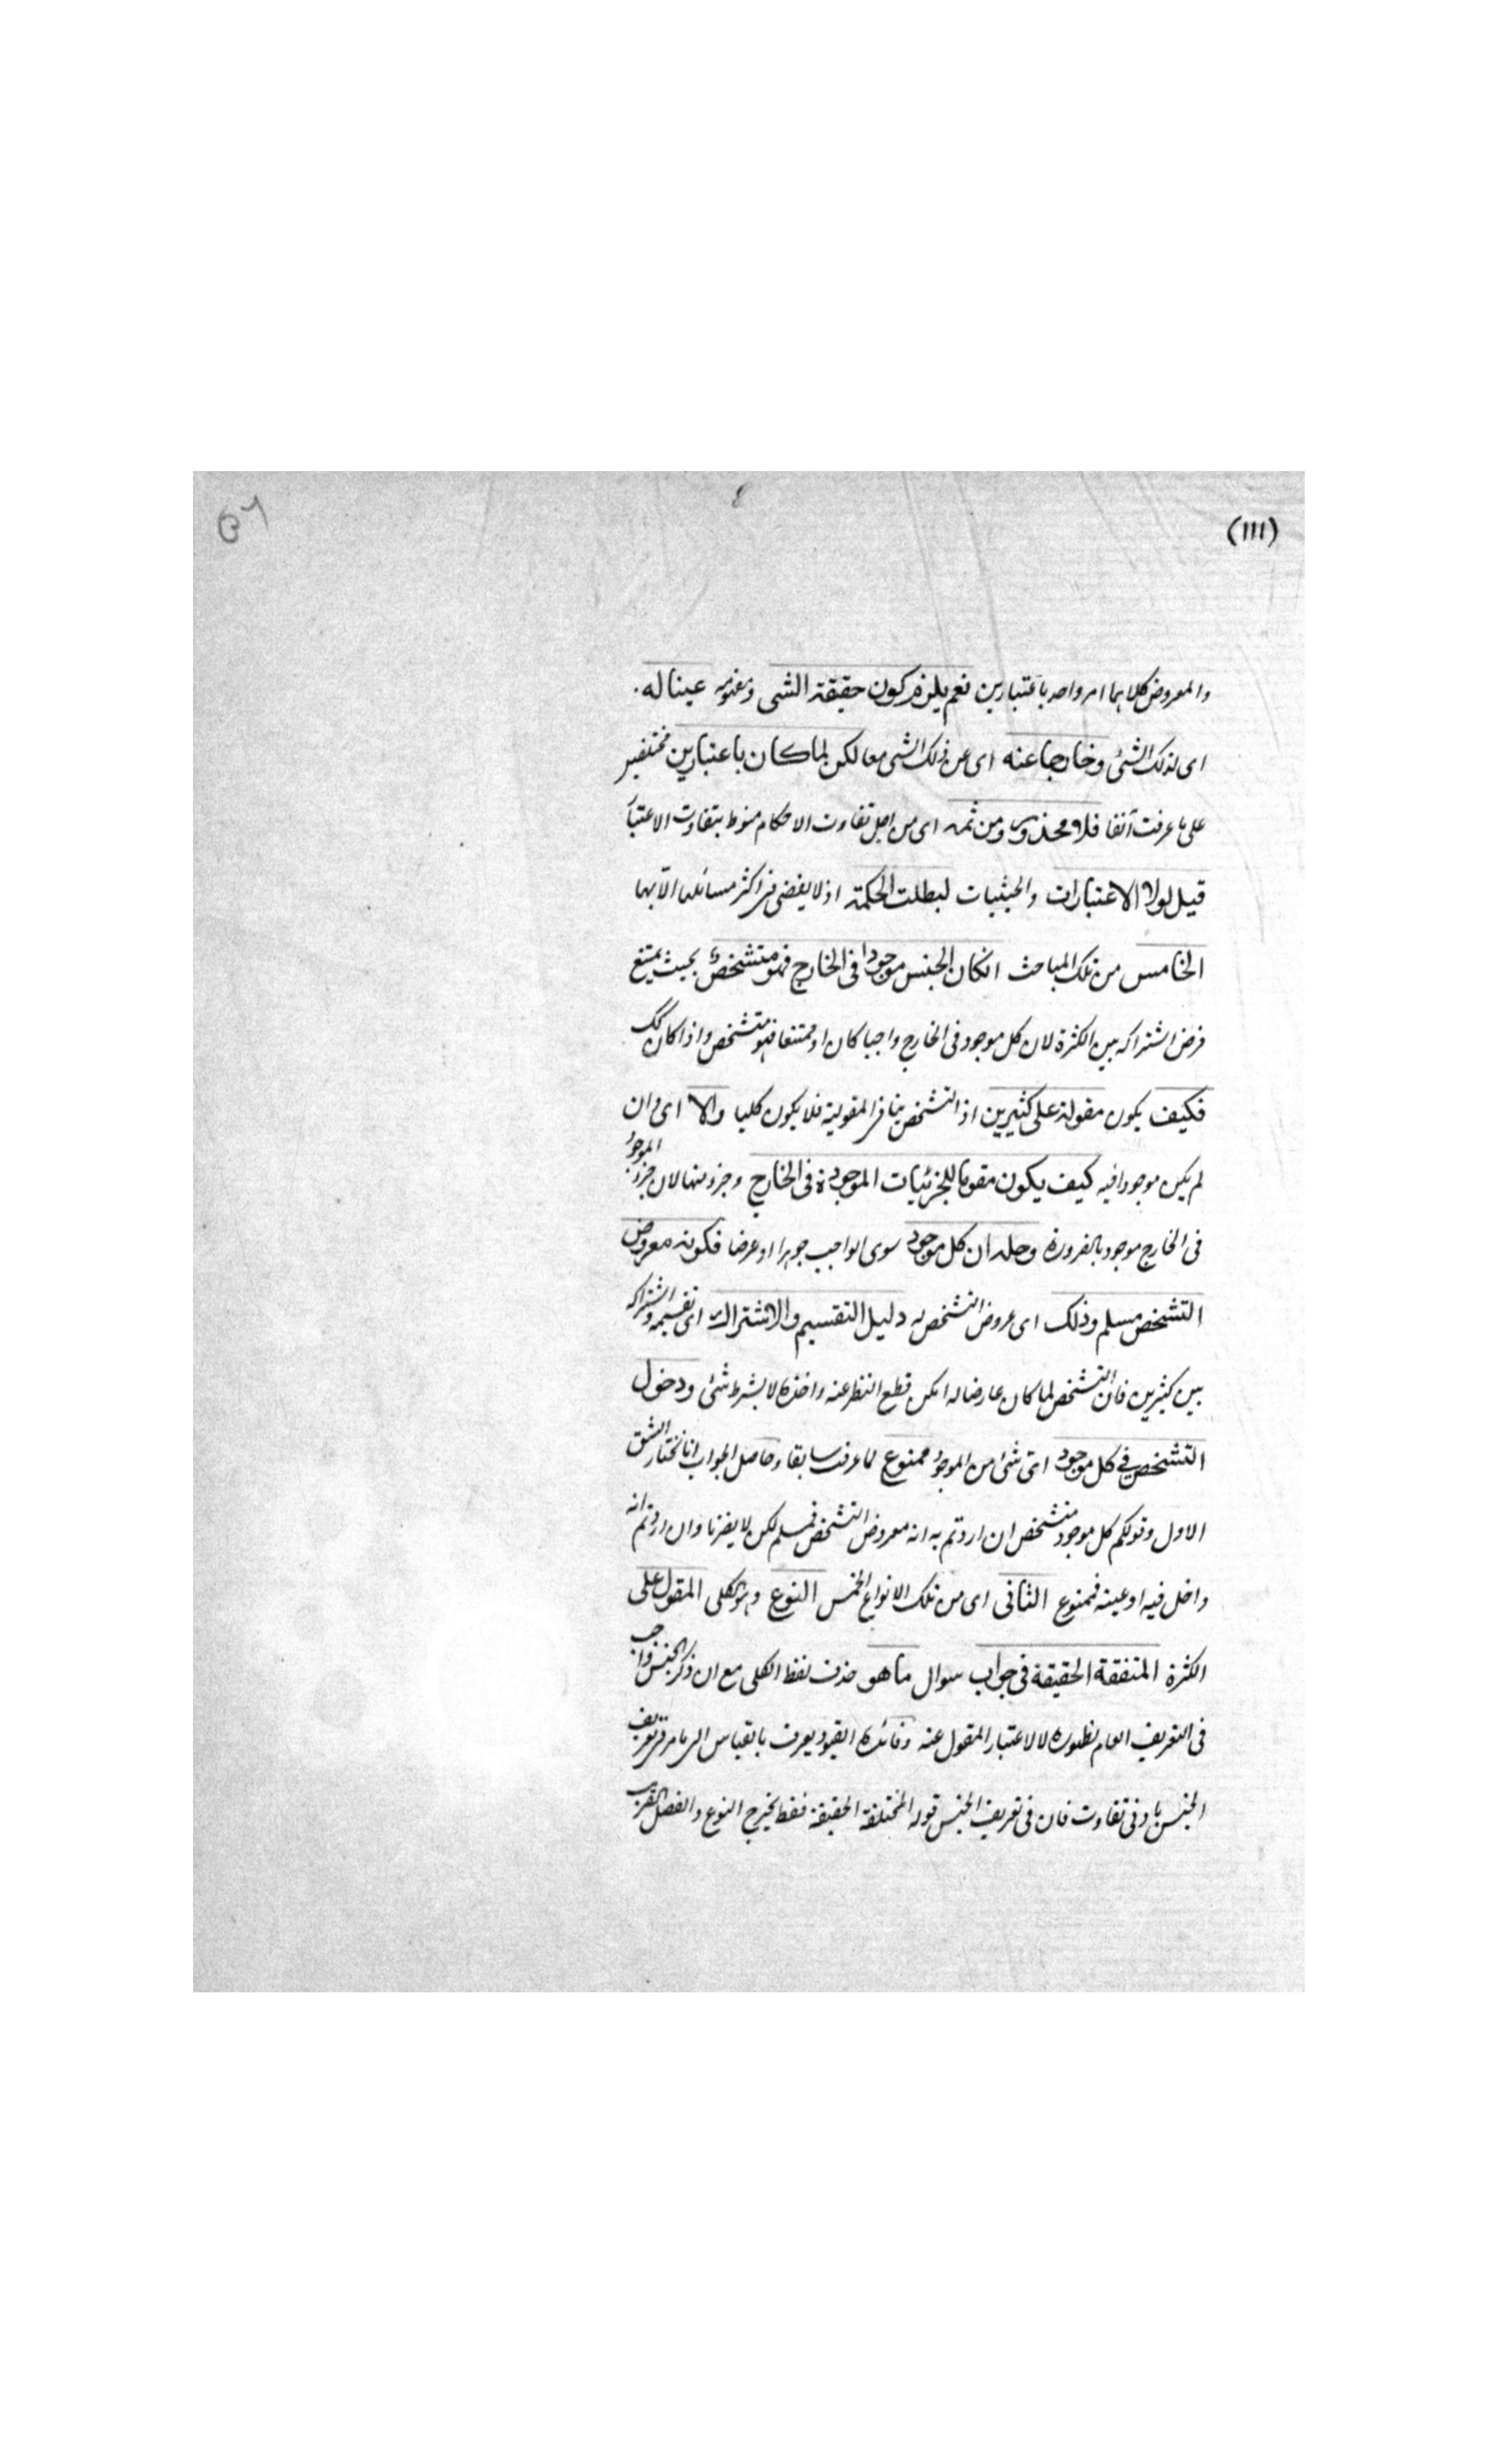 (١١١)
٥٦
والمعروض كلاهما امر واحد باعتبارين نعم يلزم كون حقيقة الشى ومفهومه عينا له
اى لذلك الشئ وخارجا عنه اى عن ذلك الشى معا لكن لما كان باعتبارين مختلفين
على ما عرفت آنفا فلا محذور ومن ثمه اى من اجل تفاوت الاحكام منوط بتفاوت الاعتبار
قيل لولا الاعتبارات والحيثيات لبطلت الحكمة اذ لا يفضى فى اكثر مسائلها الا بها
الخامس من تلك المباحث انكان الجنس موجودا فى الخارج فهو متشخص بحيث يمتنع
فرض اشتراكه بين الكثرة لان كل موجود فى الخارج واجبا كان او ممتنعا فهو متشخص واذا كان كك
فكيف يكون مقولة على كثيرين اذ التشخص ينافى المقولية فلا يكون كليا والا اى وان
لم يكن موجودا فيه كيف يكون مقوما للجزئيات الموجودة فى الخارج وجزء منها لان جزء الموجود
فى الخارج موجود بالضرورة وحله ان كل موجود سوى الواجب جوهرا او عرضا فكونه معروض
التشخص مسلم وذلك اى عروض التشخص له دليل التقسيم والاشتراك اى تقسيمه واشتراكه
بين كثيرين فان التشخص لما كان عارضا له امكن قطع النظر عنه واخذه لا بشرط شئ ودخول
التشخص فى كل موجود اى شئ من الموجود ممنوع لما عرفت سابقا وحاصل الجواب انا نختار الشق
الاول وقولكم كل موجود متشخص ان اردتم به انه معروض التشخص فمسلم لكن لا يضرنا وان اردتم انه
داخل فيه او عينه فممنوع الثانى اى من تلك الانواع الخمس النوع وهو الكلى المقول على
الكثرة المتفقة الحقيقة فى جواب سوال ما هو حذف لفظ الكلى مع ان ذكر الجنس واجب
فى التعريف العام لظهوره لا لاعتبار المقول عنه وفائدة القيود يعرف بالقياس الى ما مر فى تعريف
الجنس بادنى تفاوت فان فى تعريف الجنس قوله المختلفة الحقيقة فقط يخرج النوع والفصل القريب